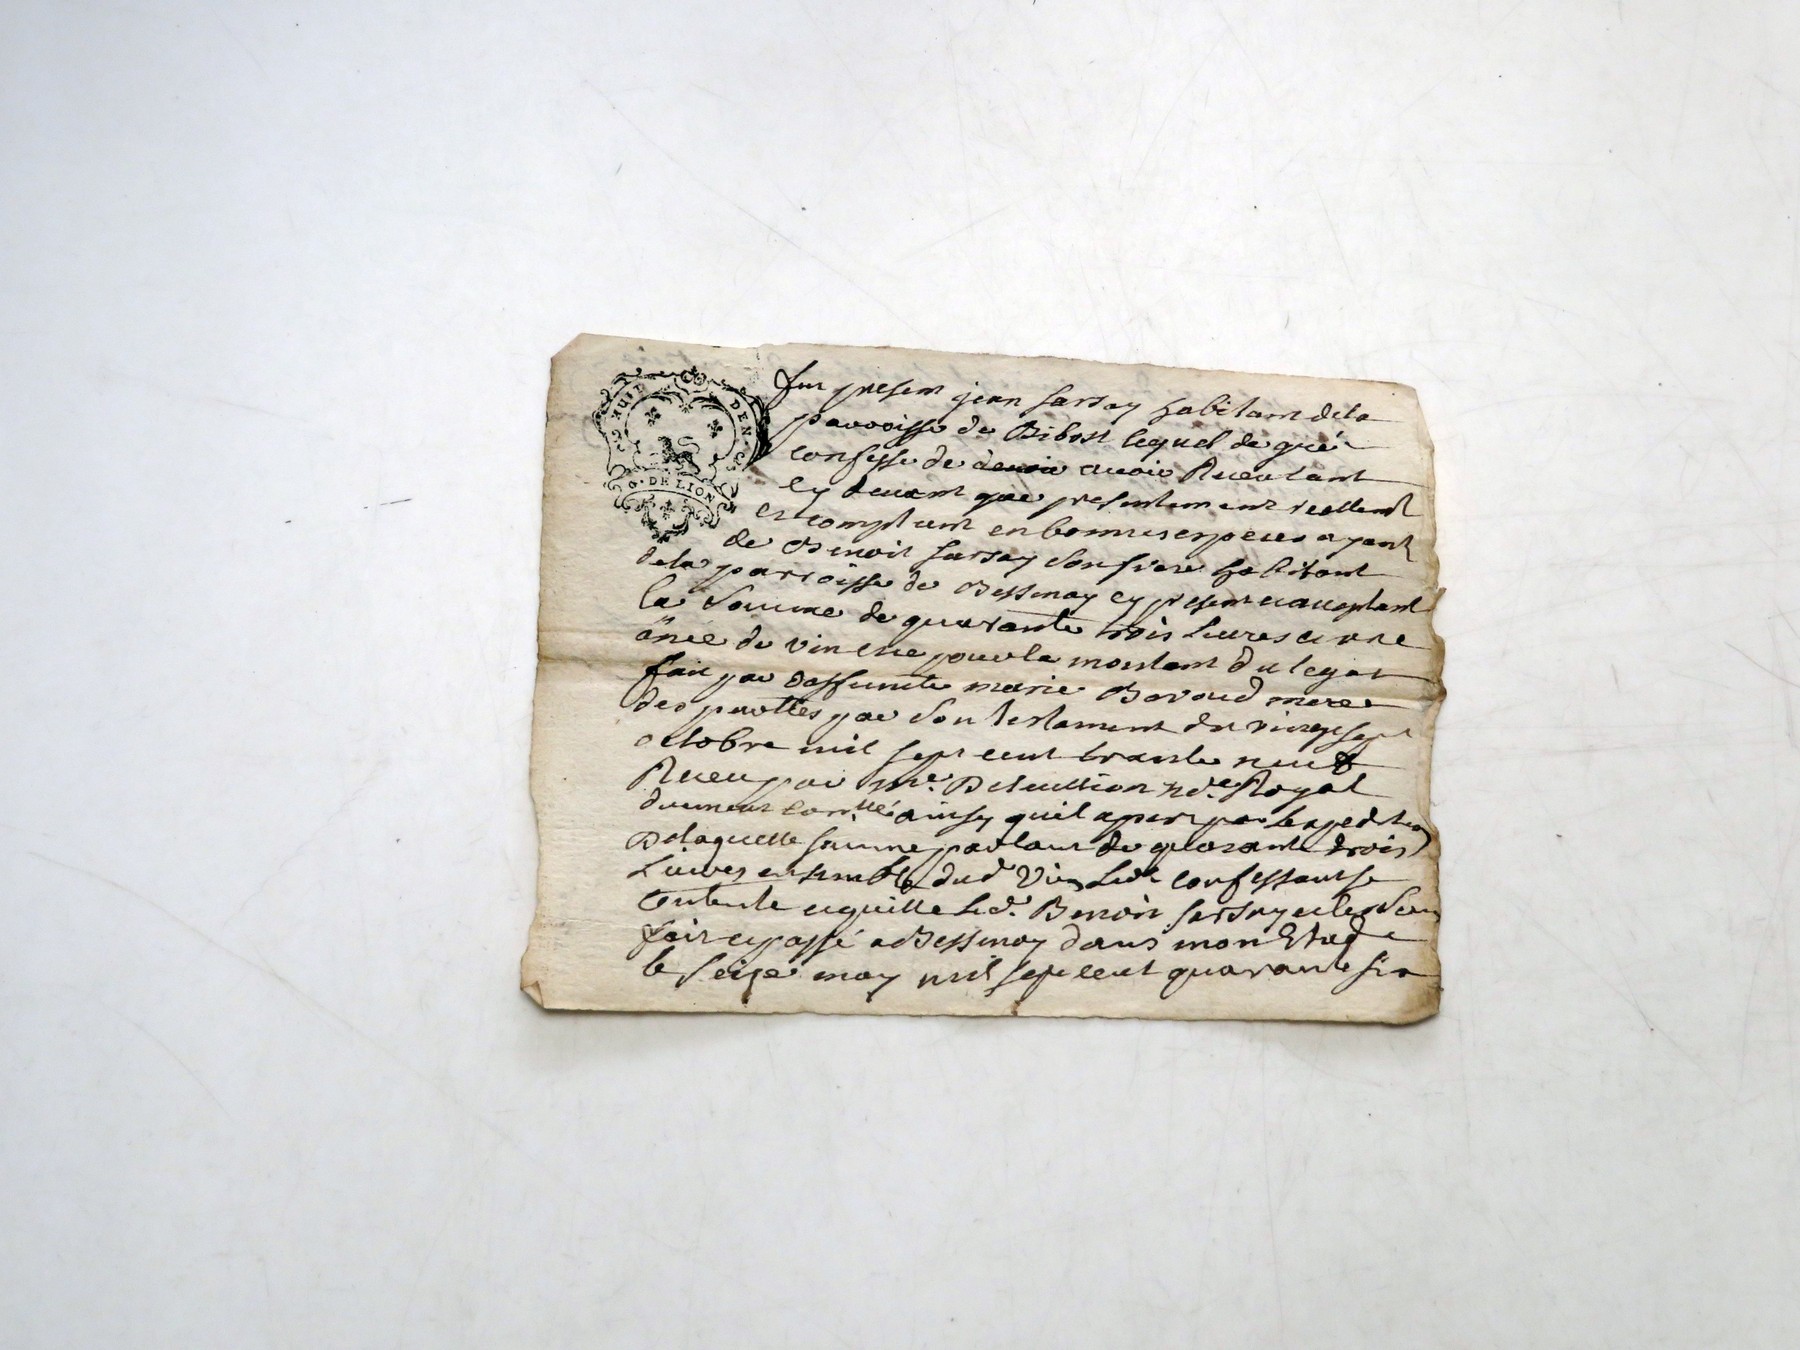 HUIT DEN.
G. DE LION
fut present jean sarsay habitant dela
parroisse de Bibost lequel de gré
confesse de avoir Receu tant
cy devant que presentement reellemt
et comptant en bonnes especes ayant
de Benoit sarsay son frere habitant
dela parroisse de Bessenay cy present et acceptant
la somme de quarante trois livres et une
ânée de vin pour le montant du legat
fait par deffuncte marie mere
des parties par son testament du vingt sept
octobre mil sept cent trante neuf
Receu par me. Royal
ainsy quil apert par Lexpedition
Delaquelle somme de quarante trois
Livres ensemble dud. Vin Led. confessant se
contente et quitte led. Benoit sarsay
fait et passé a Bessenay dans mon Etude
le seize may mil sept cent quarante six